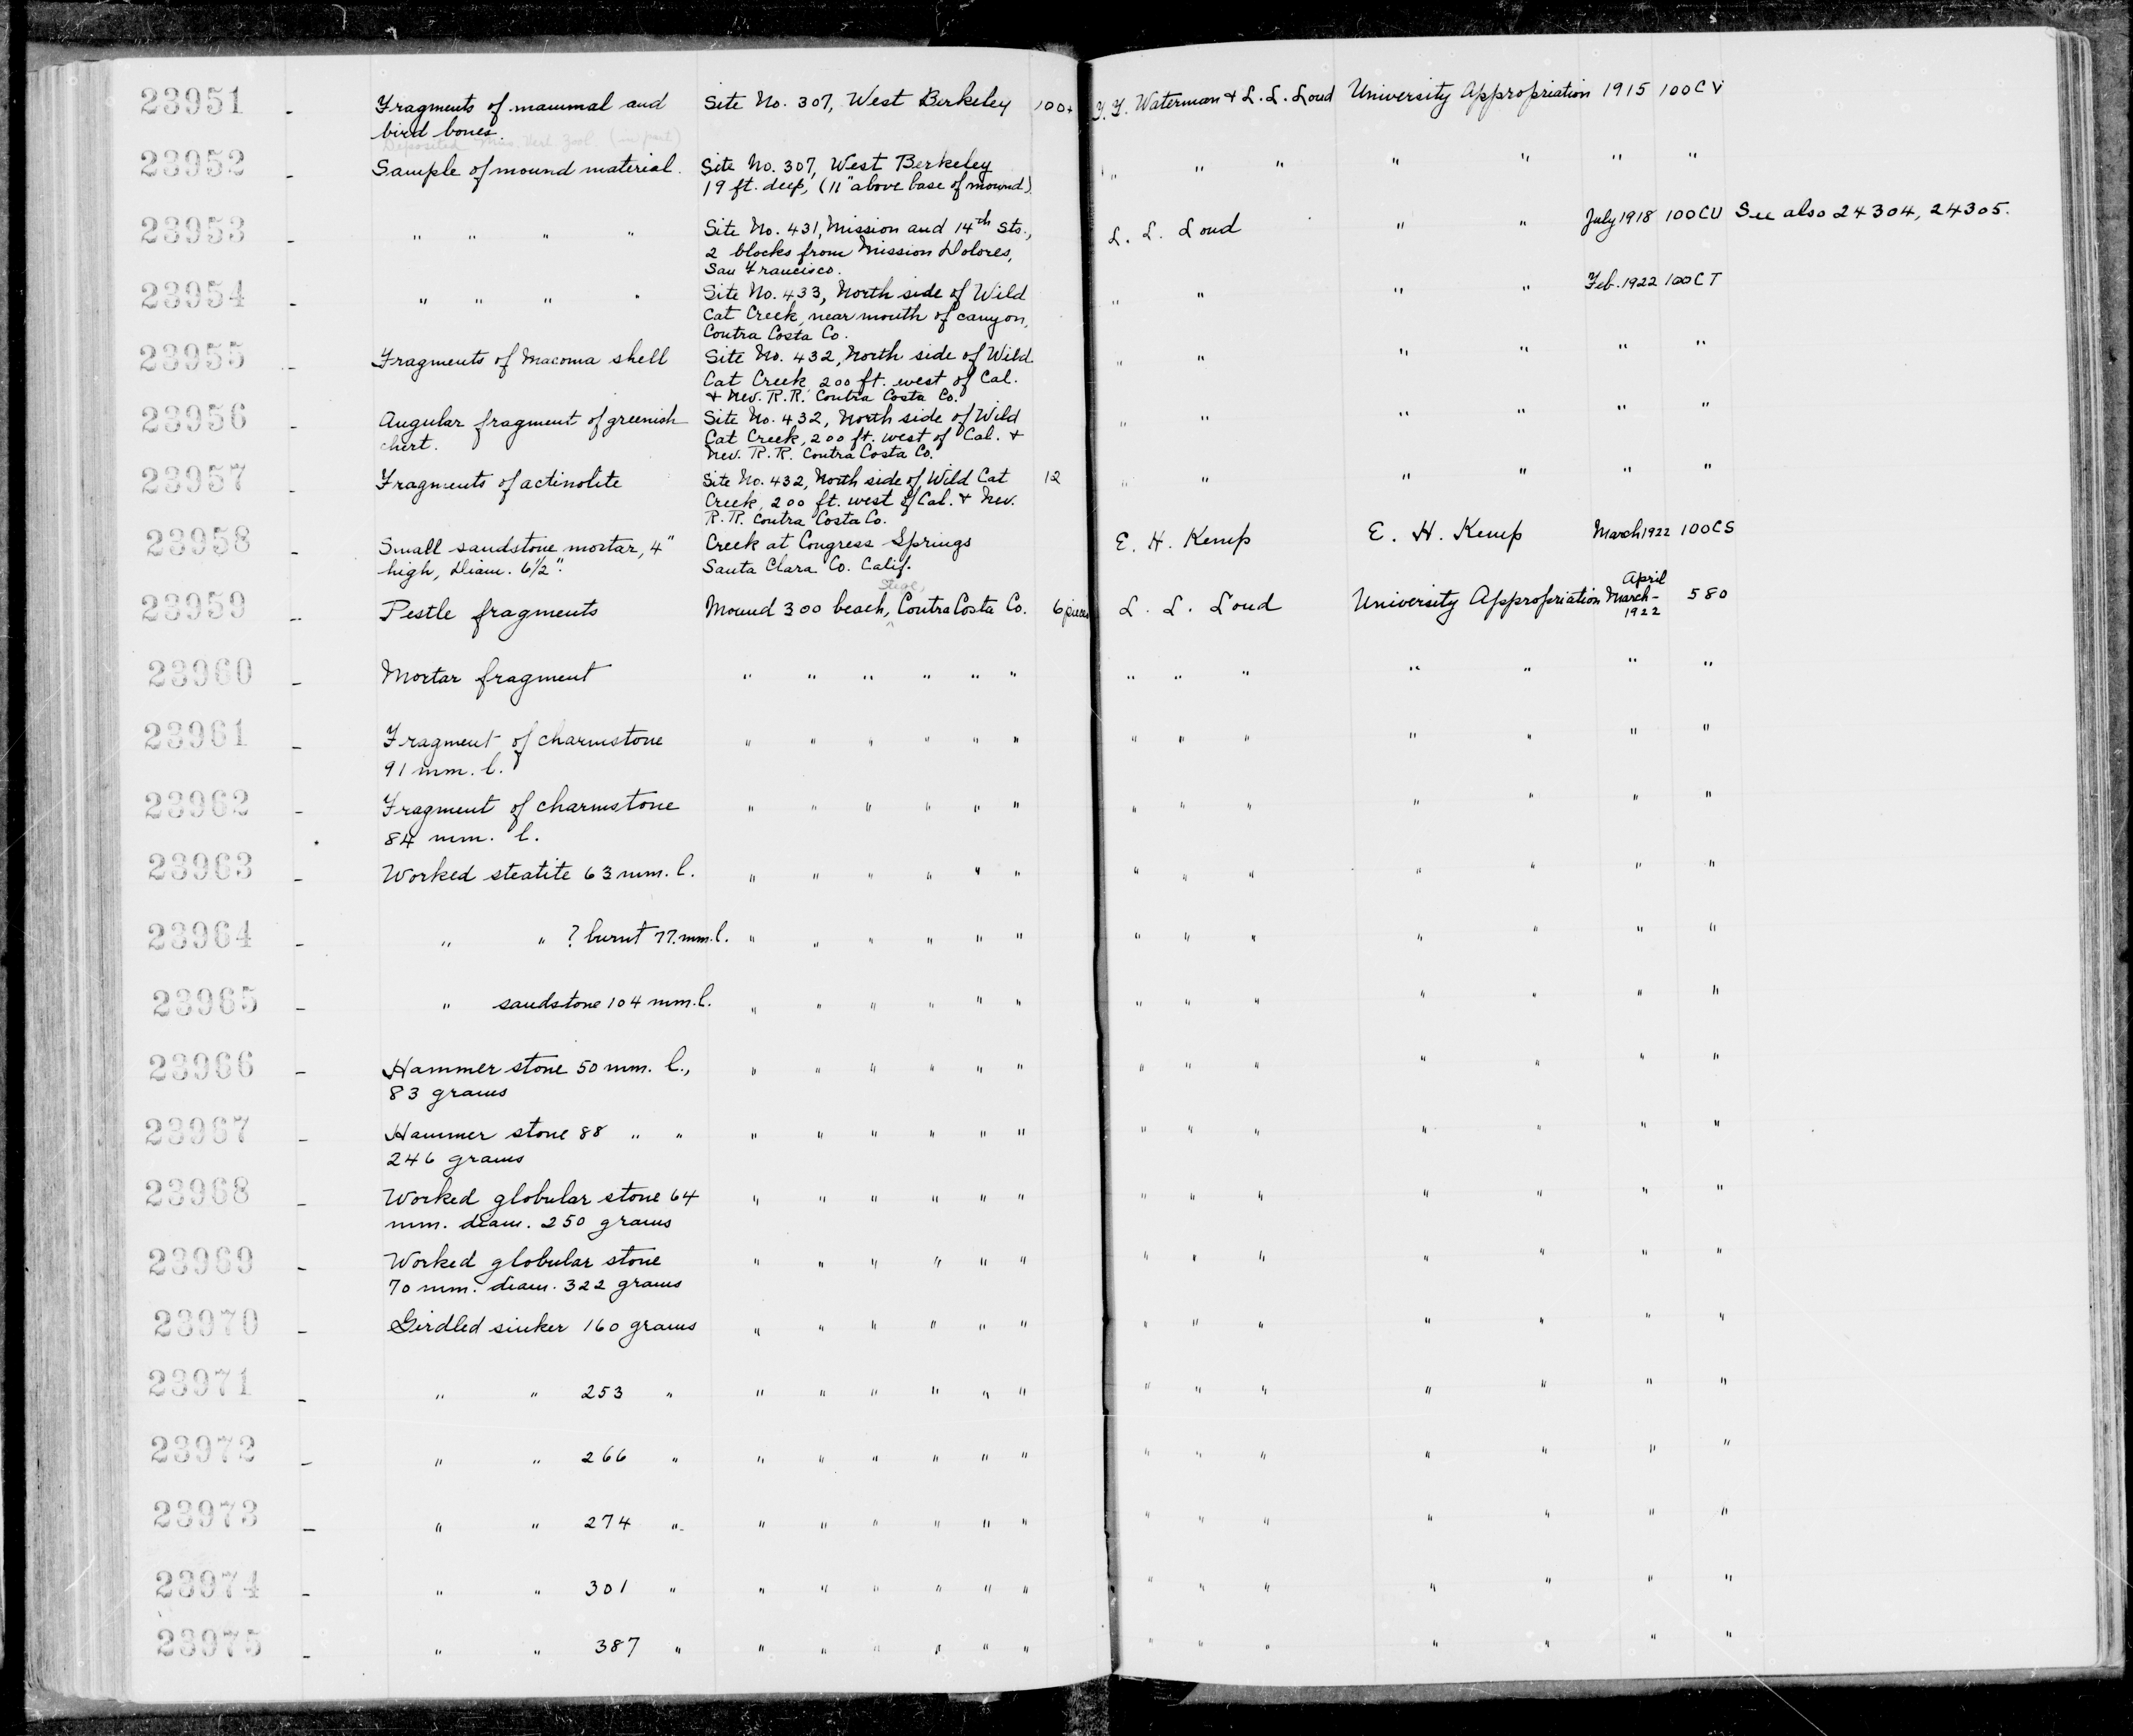 23951 - Fragments of mammal and Site No. 307, West Berkeley 100+ T. T. Waterman & L. L. Loud University Appropriation 1915 100CV
bird bones.
Deposited Mus. Vert. Zool. (in part)
23952 - Sample of mound material. Site No. 307, West Berkeley " " " " " " "
19 ft. deep, (11" above base of mound)
23953 - " " " " Site No. 431, Mission and 14th Sts., L. L. Loud " " July 1918 100CU See also 24304, 24305.
2 blocks from Mission Dolores,
San Francisco.
23954 - " " " " Site No. 433, North side of Wild " " " " Feb. 1922 100CT
Cat Creek, near mouth of canyon,
Contra Costa Co.
23955 - Fragments of Macoma shell Site No. 432, North side of Wild " " " " " "
Cat Creek, 200 ft. west of Cal.
& Nev. R.R. Contra Costa Co.
23956 - Angular fragment of greenish Site No. 432, North side of Wild " " " " " "
chert. Cat Creek, 200 ft. west of Cal. &
Nev. R.R. Contra Costa Co.
23957 - Fragments of actinolite Site No. 432, North side of Wild Cat 12 " " " " " "
Creek, 200 ft. west of Cal. & Nev.
R.R. Contra Costa Co.
23958 - Small sandstone mortar, 4" Creek at Congress Springs E. H. Kemp E. H. Kemp March 1922 100CS
high, Diam. 6 1/2". Santa Clara Co. Calif.
Stege, April
23959 - Pestle fragments Mound 300 beach, ^ Contra Costa Co. 6 pieces L. L. Loud University Appropriation March- 580
1922
23960 - Mortar fragment " " " " " " " " " " " " "
23961 - Fragment of charmstone " " " " " " " " " " " " "
91 mm. l.
23962 - Fragment of charmstone " " " " " " " " " " " " "
84 mm. l.
23963 - Worked steatite 63 mm. l. " " " " " " " " " " " " "
23964 - " " ? burnt 77. mm. l. " " " " " " " " " " " " "
23965 - " sandstone 104 mm. l. " " " " " " " " " " " " "
23966 - Hammer stone 50 mm. l., " " " " " " " " " " " " "
83 grams
23967 - Hammer stone 88 " " " " " " " " " " " " " " "
246 grams
23968 - Worked globular stone 64 " " " " " " " " " " " " "
mm. diam. 250 grams
23969 - Worked globular stone " " " " " " " " " " " " "
70 mm. diam. 322 grams
23970 - Girdled sinker 160 grams " " " " " " " " " " " " "
23971 - " " 253 " " " " " " " " " " " " " "
23972 - " " 266 " " " " " " " " " " " " " "
23973 - " " 274 " " " " " " " " " " " " " "
23974 - " " 301 " " " " " " " " " " " " " "
23975 - " " 387 " " " " " " " " " " " " " "